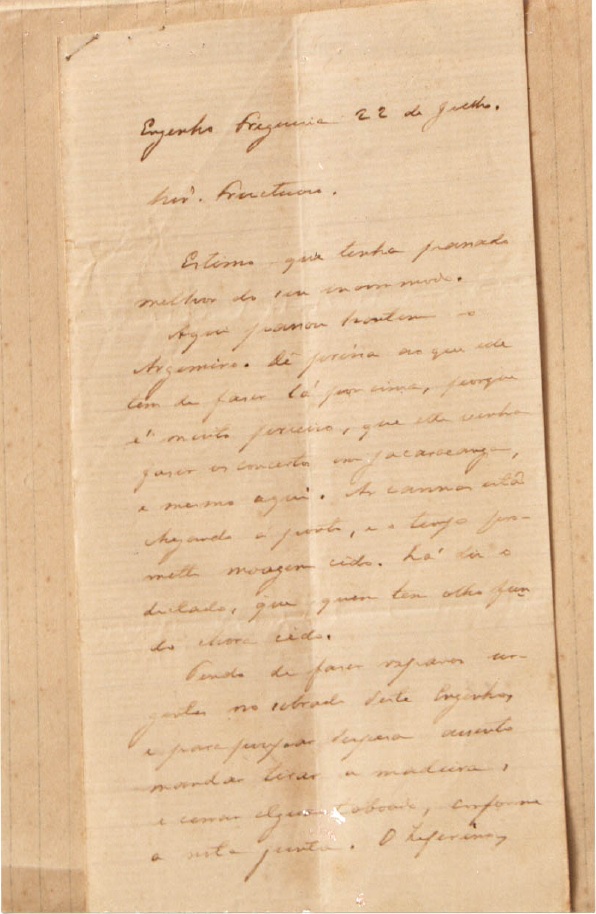 Engenho Preguiça 22 de Julho.
Snr. Fructuoso.
Estimo que tenha passado
melhor do seu incommodo.
Aqui passou hontem o
Argemiro. Dê pressa ao que elle
tem de faser lá por cima, porque
é muito preciso, que elle venha
faser os concertos em Jacarecanga,
e mesmo aqui. As cannas estão
chegando a ponto, e o tempo pro-
mette moagem cedo. Lá diz o
dictado, que quem tem olho fun-
do chora cedo.
Tendo de faser reparos ur-
gentes no sobrado deste Engenho,
e para poupar despesa
mandar tirar a madeira,
e serrar algum taboado, conforme
a nota junta. O Zeferino,